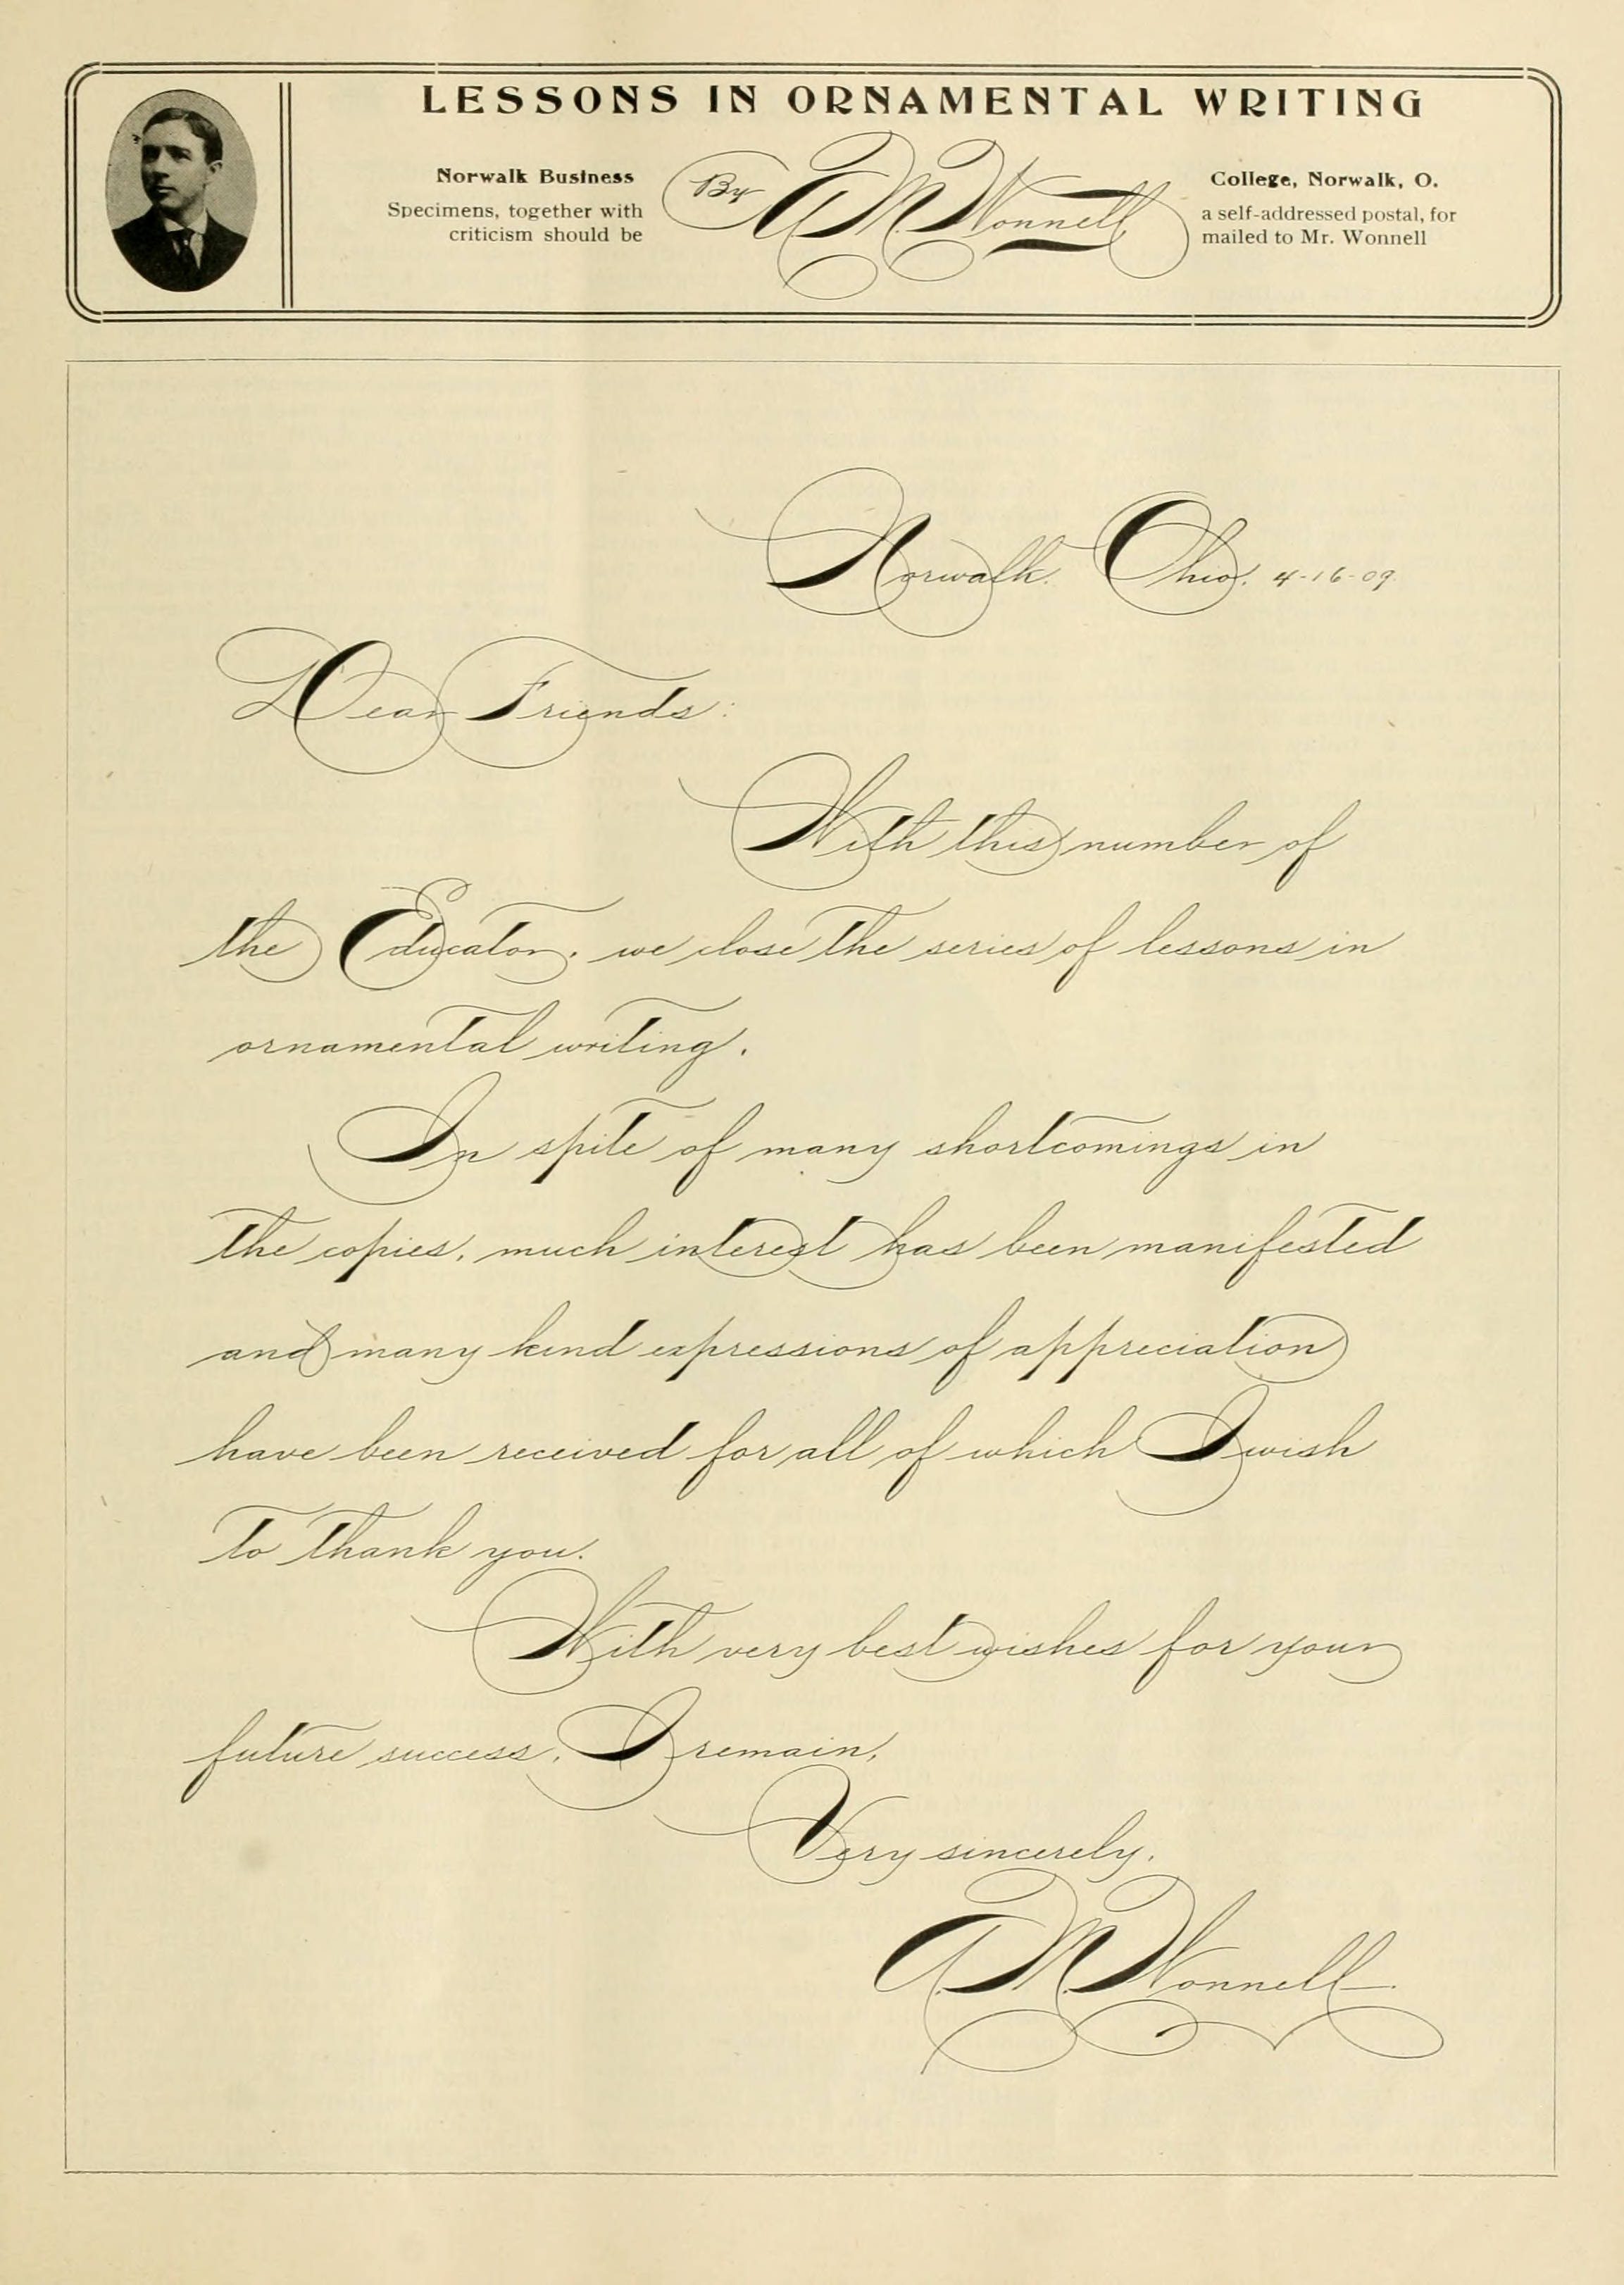 LESSONS IN ORNAMENTAL WRITING
Norwalk Business By A. M. Wonnell College, Norwalk, O.
Specimens, together with a self-addressed postal, for
criticism should be mailed to Mr. Wonnell
Norwalk. Ohio. 4-16-09.
Dear Friends:
With this number of
the Educator, we close the series of lessons in
ornamental writing.
In spite of many shortcomings in
the copies, much interest has been manifested
and many kind expressions of appreciation
have been received for all of which I wish
to thank you.
With very best wishes for your
future success, I remain,
Very sincerely,
A. M. Wonnell.